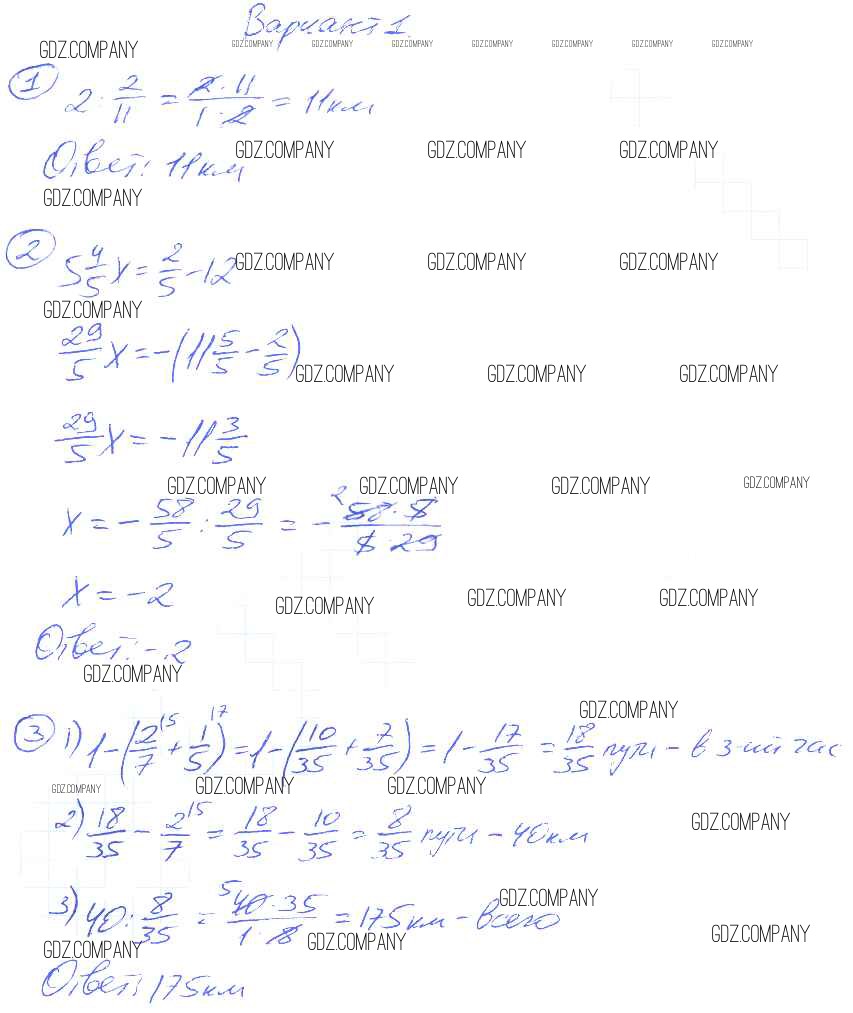 Вариант 1.
GDZ.COMPANY GDZ.COMPANY GDZ.COMPANY GDZ.COMPANY GDZ.COMPANY GDZ.COMPANY GDZ.COMPANY GDZ.COMPANY
① 2 : 2/11 = 2·11/1·2 = 11 км
GDZ.COMPANY GDZ.COMPANY GDZ.COMPANY
Ответ: 11 км
GDZ.COMPANY
② 5 4/5 x = 2/5 - 12
GDZ.COMPANY GDZ.COMPANY GDZ.COMPANY
GDZ.COMPANY
29/5 x = -(11 5/5 - 2/5)
GDZ.COMPANY GDZ.COMPANY GDZ.COMPANY
29/5 x = -11 3/5
GDZ.COMPANY GDZ.COMPANY GDZ.COMPANY GDZ.COMPANY
x = - 58/5 : 29/5 = - 2 58·5/5·29
x = -2
GDZ.COMPANY GDZ.COMPANY GDZ.COMPANY
Ответ: -2
GDZ.COMPANY
GDZ.COMPANY
③ 1) 1-(2/7 \5 + 1/5 \7) = 1-(10/35 + 7/35) = 1 - 17/35 = 18/35 пути - в 3-ий час
GDZ.COMPANY GDZ.COMPANY GDZ.COMPANY
2) 18/35 - 2/7 \5 = 18/35 - 10/35 = 8/35 пути - 40 км
GDZ.COMPANY
3) 40 : 8/35 = 5 40·35/1·8 = 175 км - всего
GDZ.COMPANY
GDZ.COMPANY GDZ.COMPANY GDZ.COMPANY
Ответ: 175 км